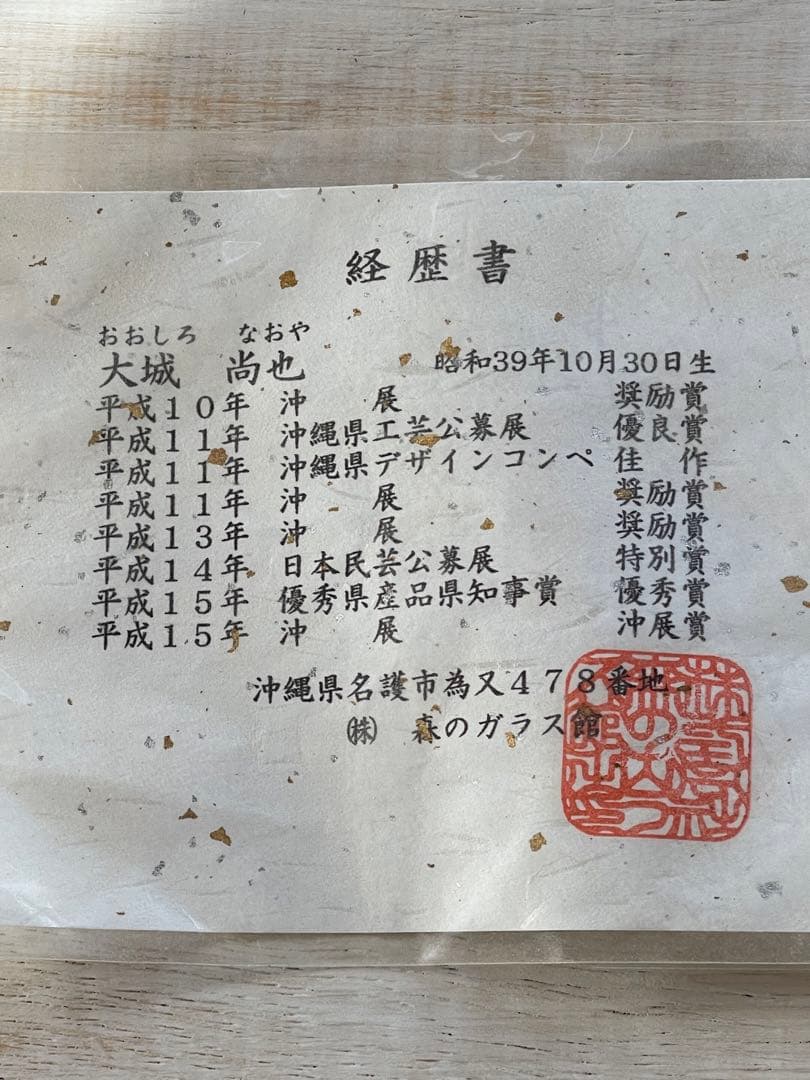 経歴書
おおしろ なおや
大城 尚也 昭和39年10月30日生
平成10年 沖 展 奨励賞
平成11年 沖縄県工芸公募展 優良賞
平成11年 沖縄県デザインコンペ 佳 作
平成11年 沖 展 奨励賞
平成13年 沖 展 奨励賞
平成14年 日本民芸公募展 特別賞
平成15年 優秀県産品県知事賞 優秀賞
平成15年 沖 展 沖展賞
沖縄県名護市為又478番地
㈱ 森のガラス館